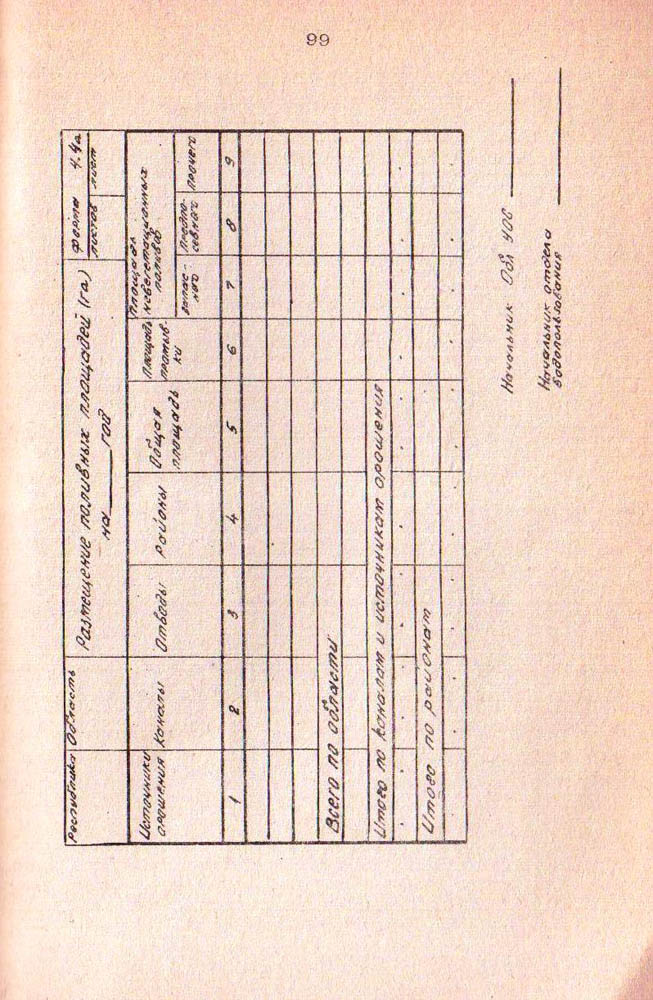 99
Республика Область
Размещение поливных площадей (га)
на ______ год
Форма 4.4а
листов лист
Источники орошения
Каналы
Отводы
Районы
Общая площадь
Площадь промывки
Площадь невегетационных поливов
запасного
Предпосевного
Прочего
1 2 3 4 5 6 7 8 9
Всего по области
Итого по каналам и источникам орошения
Итого по районам
Начальник Обл УОС ______
Начальник отдела
водопользования ______